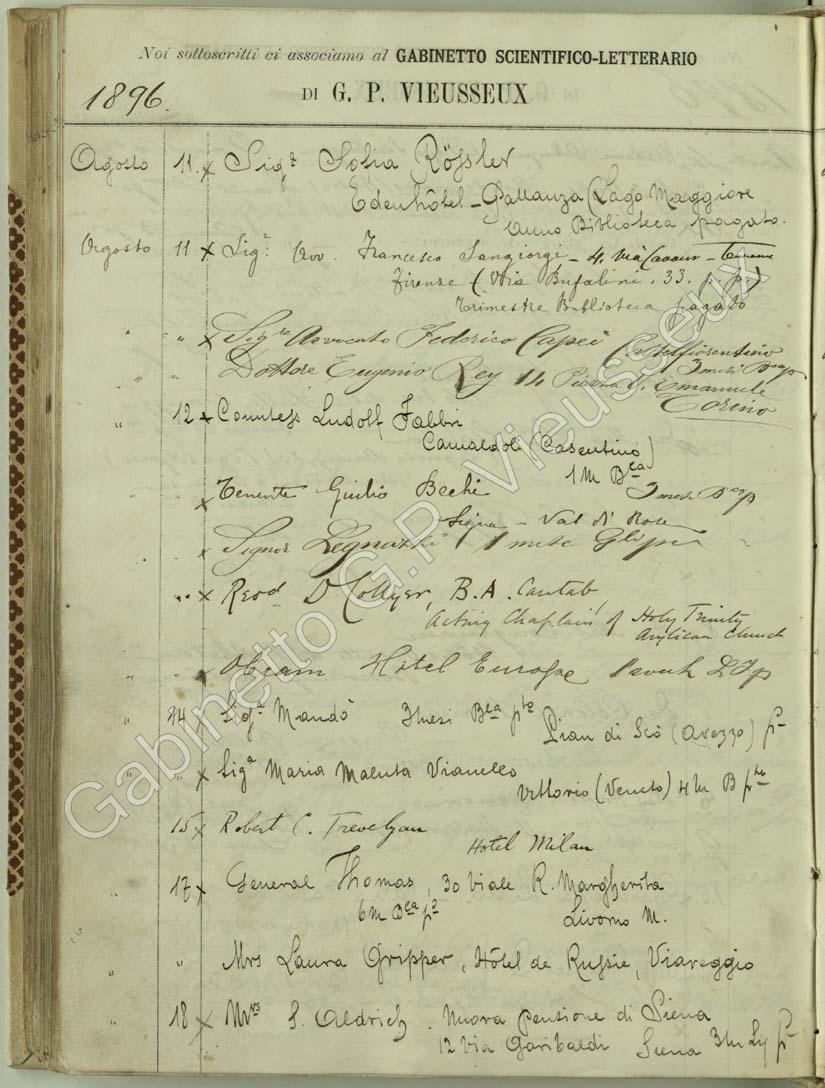 Noi sottoscritti ci associamo al GABINETTO SCIENTIFICO-LETTERARIO
1896.
DI G. P. VIEUSSEUX
Agosto 11. x Sigª Sofia Rößler
Edenhôtel - Pallanza (Lago Maggiore
Anno Biblioteca pagato.
Agosto 11 x Sigʳ Avv. Francesco Sangiorgi - 4. Via Cavour -
Firenze (Via Bufalini. 33. p. p.)
Trimestre Biblioteca pagato
" " x Avvocato Federico Capei Castelfiorentino
3 mesi
" " Dottore Eugenio Rey 14 Piazza V. Emanuele
Torino
" 12 x Comtess Ludolf Fabbri
Camaldoli (Casentino)
1 M Bca
x Tenente Giulio Bechi 3 mesi
Signa - Val di Rose
x Signor 1 mese
" x Revd D Collyer, B.A. Cantab,
Acting Chaplain of Holy Trinity
Anglican Church
" x Hotel Europe
" 14 x Sigª Mandò 3 mesi Bca pto
Pian di Scò (Arezzo)
" " x Sigª Maria Maluta Vianello
Vittorio (Veneto) 4 M B pto
15 x Robert C. Trevelyan
Hotel Milan
" 17 x General Thomas, 30 Viale R. Margherita
6 M Bca Livorno M.
" " Mrs Laura Gripper, Hôtel de Rußie, Viareggio
" 18 x Mrs S. Aldrich. Nuova pensione di Siena
12 Via Garibaldi Siena 3 M
Gabinetto G.P. Vieusseux